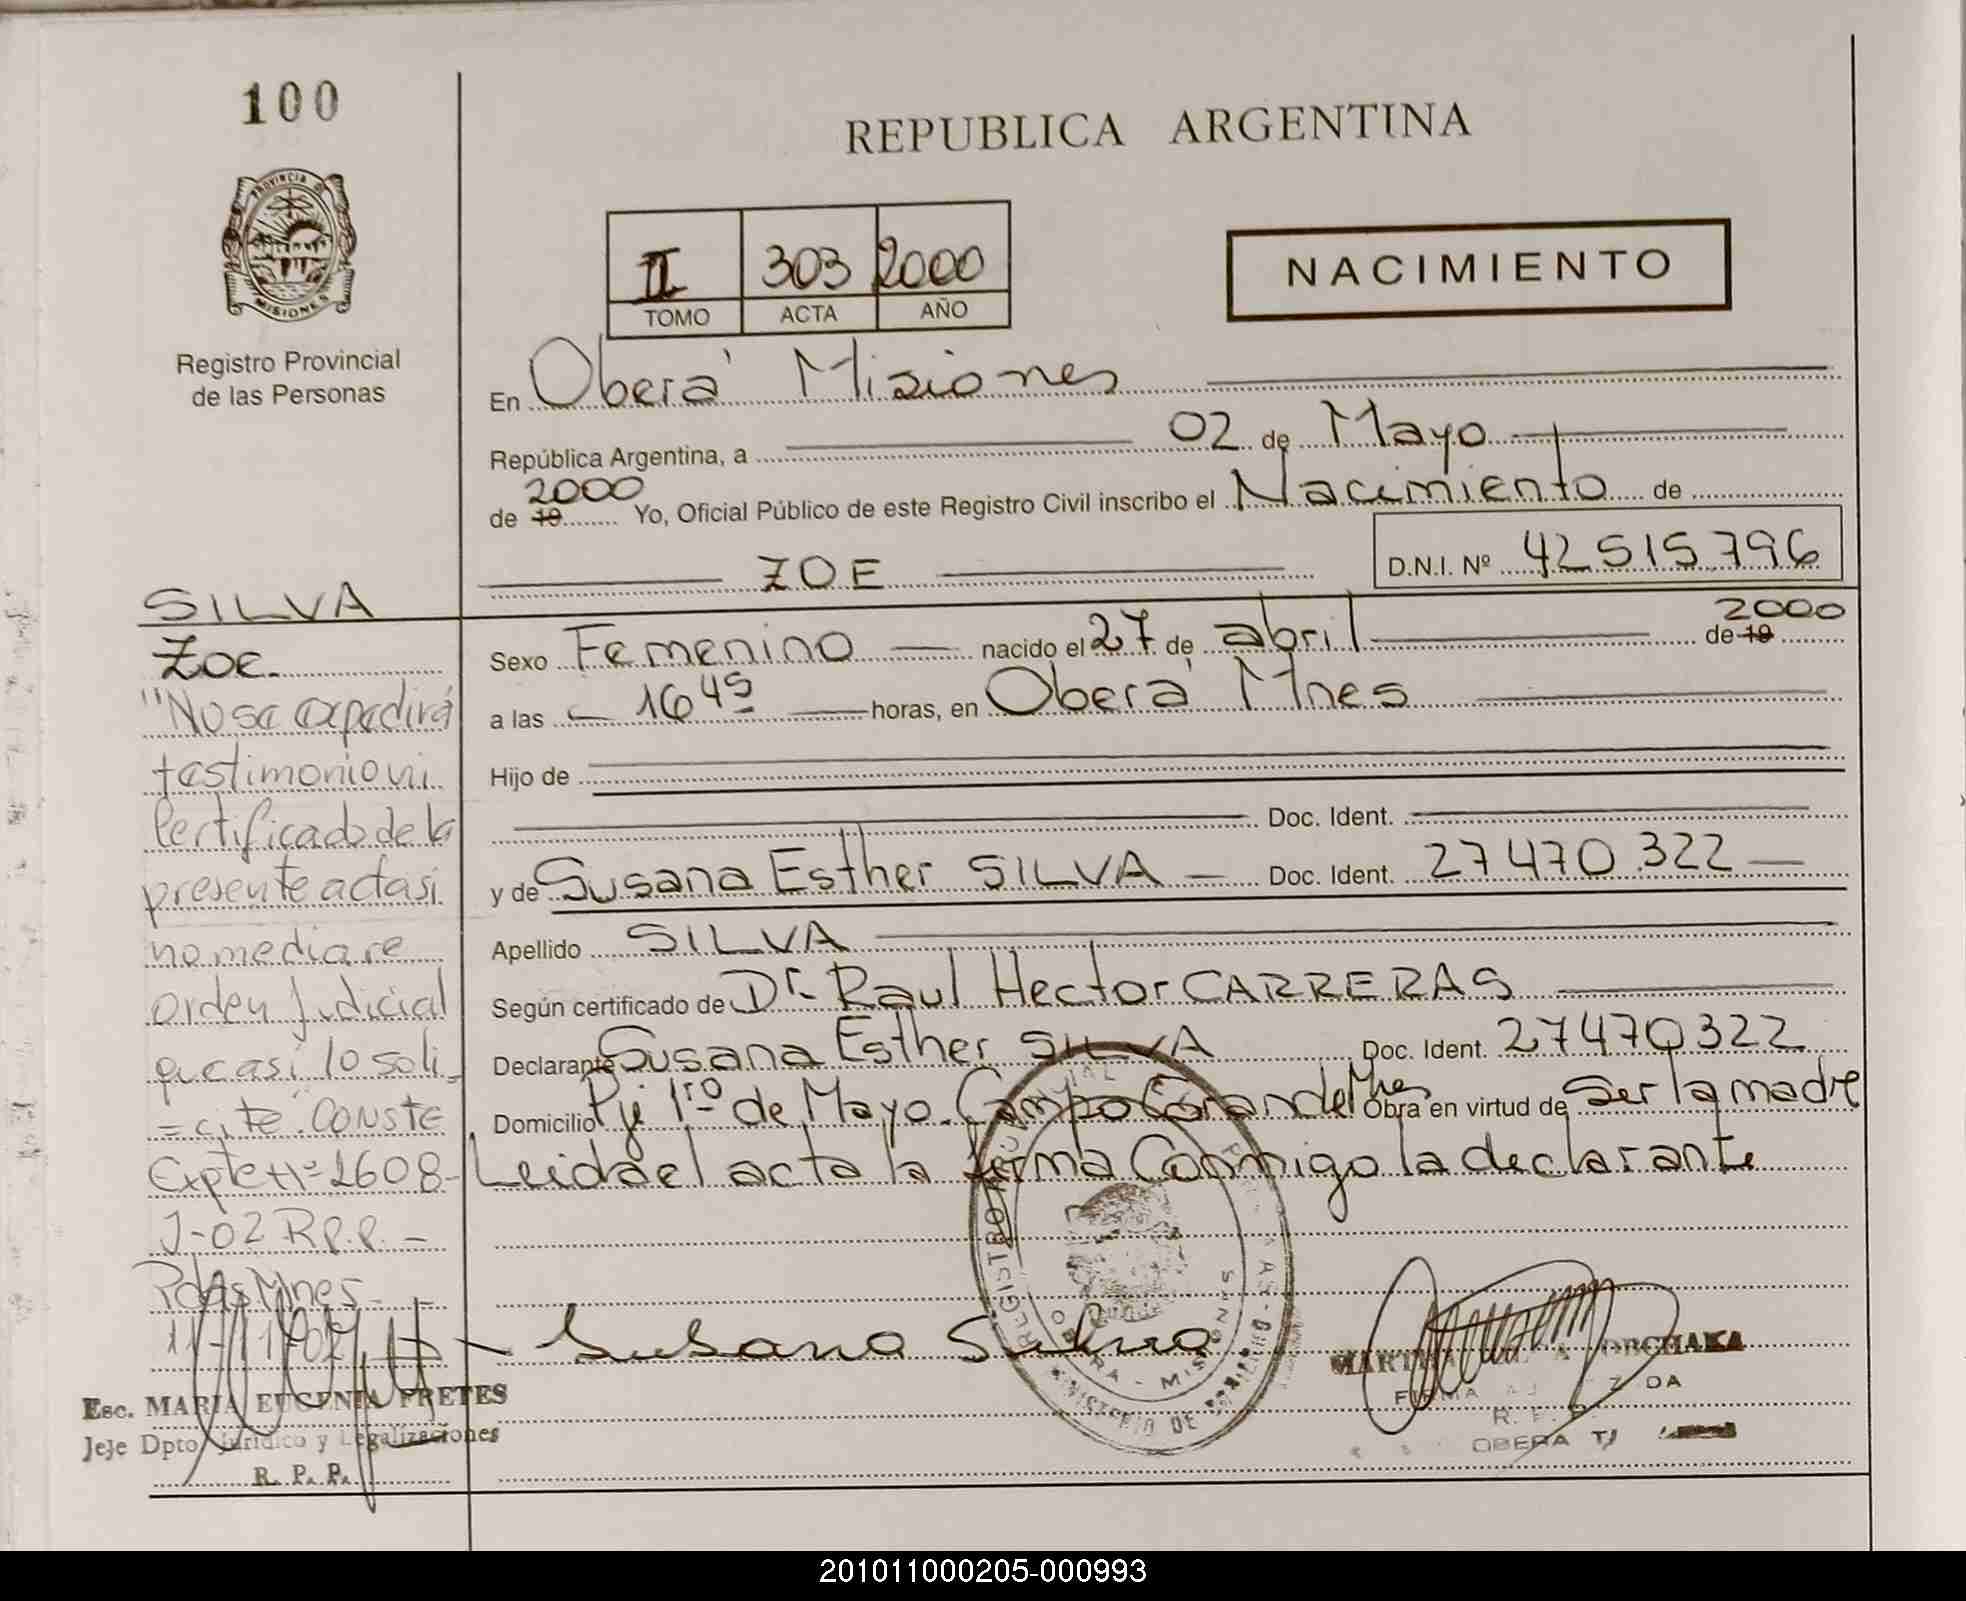 100
REPUBLICA ARGENTINA
PROVINCIA DE
MISIONES
Registro Provincial
de las Personas
II 303 2000
TOMO ACTA AÑO
NACIMIENTO
En Oberá Misiones
República Argentina, a 02 de Mayo
de 19 2000 Yo, Oficial Público de este Registro Civil inscribo el Nacimiento de
ZOE D.N.I. Nº 42 515 796
Sexo Femenino nacido el 27 de abril de 19 2000
a las 16 45 horas, en Oberá Mnes
Hijo de
Doc. Ident.
y de Susana Esther SILVA Doc. Ident. 27 470 322
Apellido SILVA
Según certificado de Dr. Raul Hector CARRERAS
Declarante Susana Esther SILVA Doc. Ident. 27470322
Domicilio Pje 1ro de Mayo. Campo Grande Mnes Obra en virtud de Ser la madre
Leida el acta la firma Conmigo la declarante
Susana Silva
SILVA
Zoe.
"No se expedirá
testimonio ni
Certificado de la
presente acta si
no media re
orden judicial
que asi lo soli_
=cite". CONSTE
Expte Nº 2608-
J-02 R.P.P. -
Pdas Mnes
Esc. MARIA EUGENIA FRETES
Jefe Dpto Jurídico y Legalizaciones
R. P. P.
REGISTRO
OBERA - MISIONES
MINISTERIO DE
R. P.
OBERA
201011000205-000993